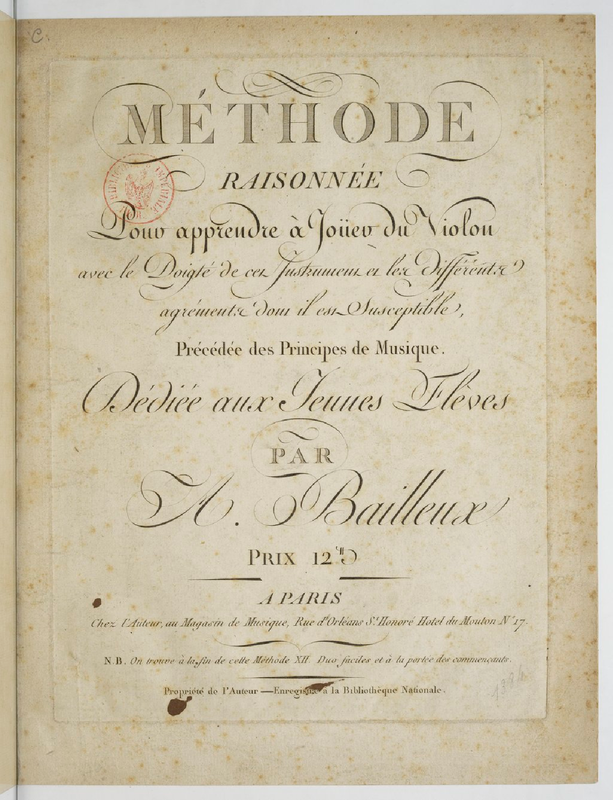 C.
MÉTHODE
RAISONNÉE
Pour apprendre à Joüer du Violon
avec le Doigté de cet Instrument et les différents
agréments dont il est Susceptible,
Précédée des Principes de Musique.
Dédiée aux Jeunes Elèves
PAR
A. Bailleux
PRIX 12ᵗᵗ
A PARIS
Chez l'Auteur, au Magasin de Musique, Rue d'Orléans St. Honoré Hotel du Mouton N° 17.
N.B. On trouve à la fin de cette Méthode XII Duo faciles et à la portée des commençants.
Propriété de l'Auteur — Enregistré à la Bibliothèque Nationale.